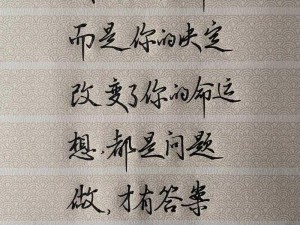 而是你的决定
改变了你的命运
想,都是问题
做,才有答案